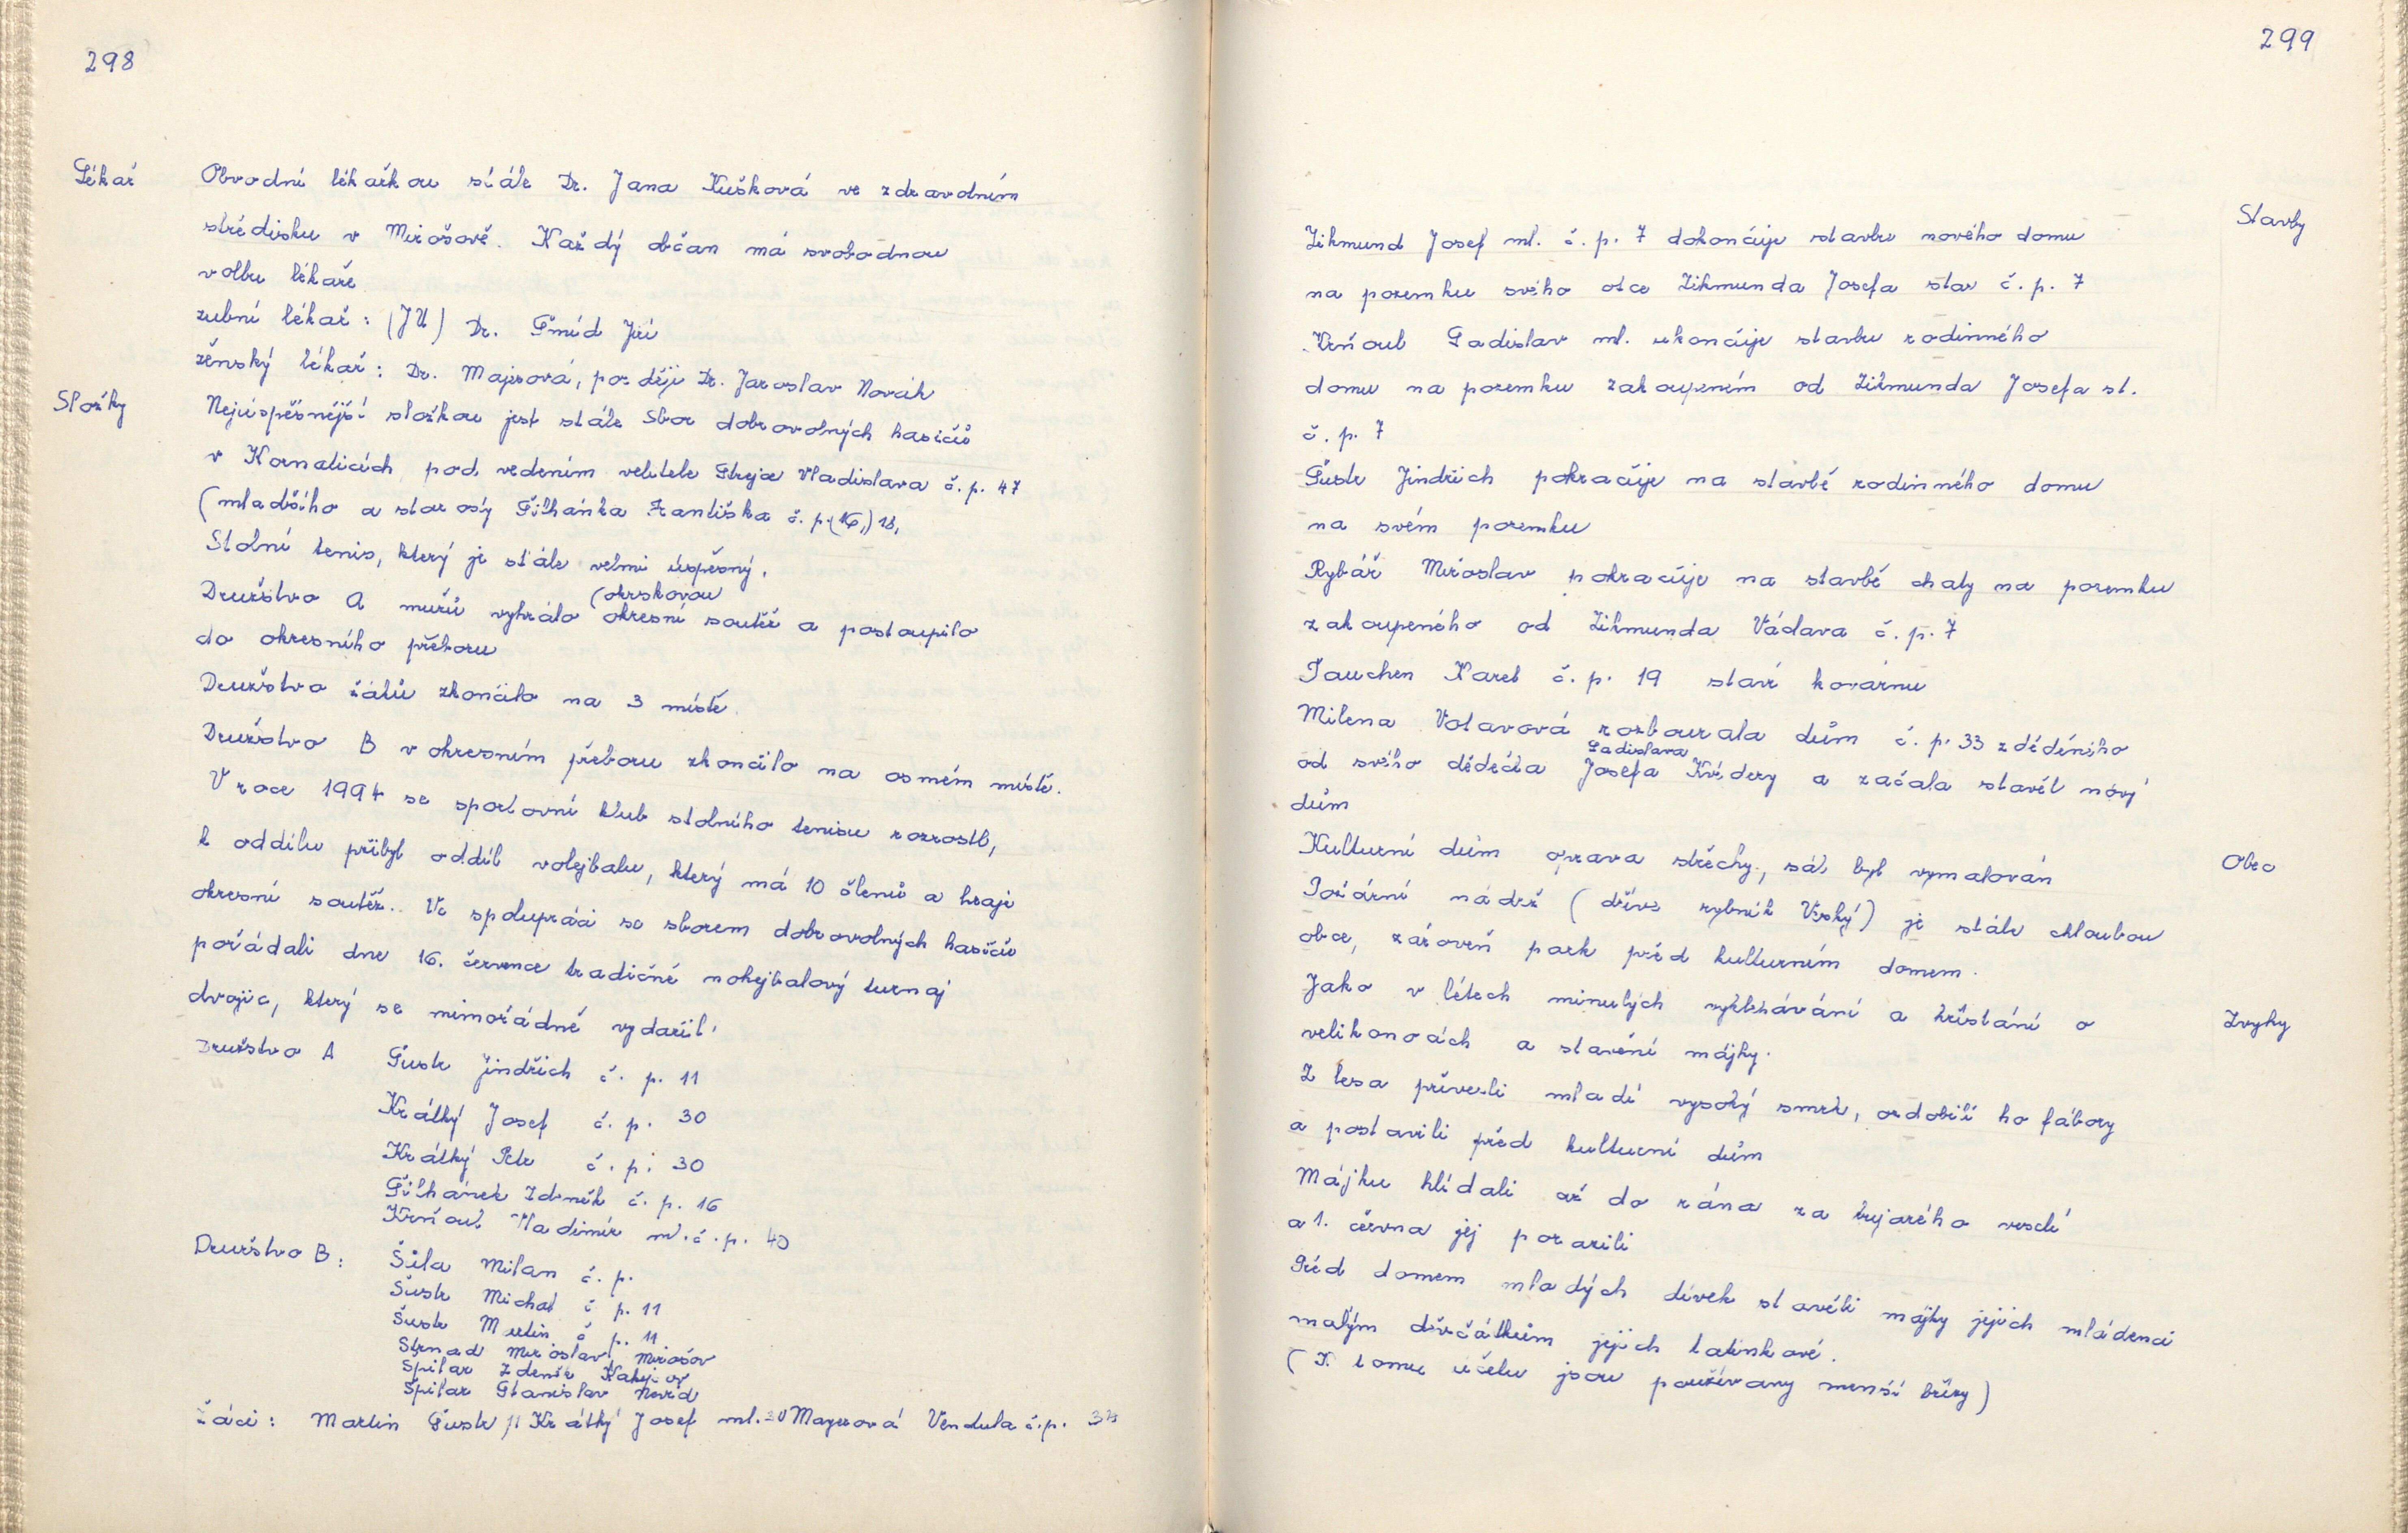 298
Lékař
Obvodní lékařkou stále Dr. Jana Kušková ve zdravotním
středisku v Mirošově. Každý občan má svobodnou
volbu lékaře
zubní lékař: (JU) Dr. Šmíd Jiří
ženský lékař: Dr. Majerová, později Dr. Jaroslav Novák
Složky
Nejúspěšnější složkou jest stále Sbor dobrovolných hasičů
v Kornaticích pod vedením velitele Vladislava č. p. 47
(mladšího a starosty Šilhánka Františka č. p. (16,) 18,
Stolní tenis, který je stále velmi úspěšný.
(okrskovou
Družstvo A mužů vyhrálo okresní soutěž a postoupilo
do okresního přeboru
Družstvo žáků skončilo na 3 místě
Družstvo B v okresním přeboru skončilo na osmém místě.
V roce 1994 se sportovní klub stolního tenisu rozrostl,
k oddílu přibyl oddíl volejbalu, který má 10 členů a hraje
okresní soutěž. Ve spolupráci se sborem dobrovolných hasičů
pořádali dne 16. července tradičně nohejbalový turnaj
dvojic, který se mimořádně vydařil.
Družstvo A Šustr Jindřich č. p. 11
Krátký Josef č. p. 30
Krátký Petr č. p. 30
Šilhánek Zdeněk č. p. 16
Krňoul Vladimír ml. č. p. 40
Družstvo B: Šůla Milan č. p.
Šustr Michal č p. 11
Šustr Martin č p. 11
Strnad Miroslav Mirošov
Špilar Zdeněk
Špilar Stanislav
Žáci: Martin Šustr 11 Krátký Josef ml. 30 Mayerová Vendula č. p.
299
Stavby
Zikmund Josef ml. č. p. 7 dokončuje stavbu nového domu
na pozemku svého otce Zikmunda Josefa star č. p. 7
Krňoul Ladislav ml. ukončuje stavbu rodinného
domu na pozemku zakoupeném od Zikmunda Josefa st.
č. p. 7
Šustr Jindřich pokračuje na stavbě rodinného domu
na svém pozemku
Rybář Miroslav pokračuje na stavbě chaty na pozemku
zakoupeného od Zikmunda Václava č. p. 7
Tauchen Karel č. p. 19 staví kovárnu
Milena Votavová rozbourala dům č. p. 33 zděděného
Ladislava
od svého dědečka Josefa Kvídery a začala stavět nový
dům
Obec
Kulturní dům oprava střechy, sál byl vymalován
Požární nádrž (dříve rybník Veský) je stále chloubou
obce, zároveň park před kulturním domem.
Zvyky
Jako v létech minulých vyklepávání a křístání o
velikonocích a stavění májky.
Z lesa přivezli mladí vysoký smrk, ozdobili ho fábory
a postavili před kulturní dům
Májku hlídali až do rána za bujarého veselí
a 1. června jej porazili
Před domem mladých dívek stavěli májky jejich mládenci
malým děvčátkům jejich tatínkové.
(K tomu účelu jsou používany menší břízy)